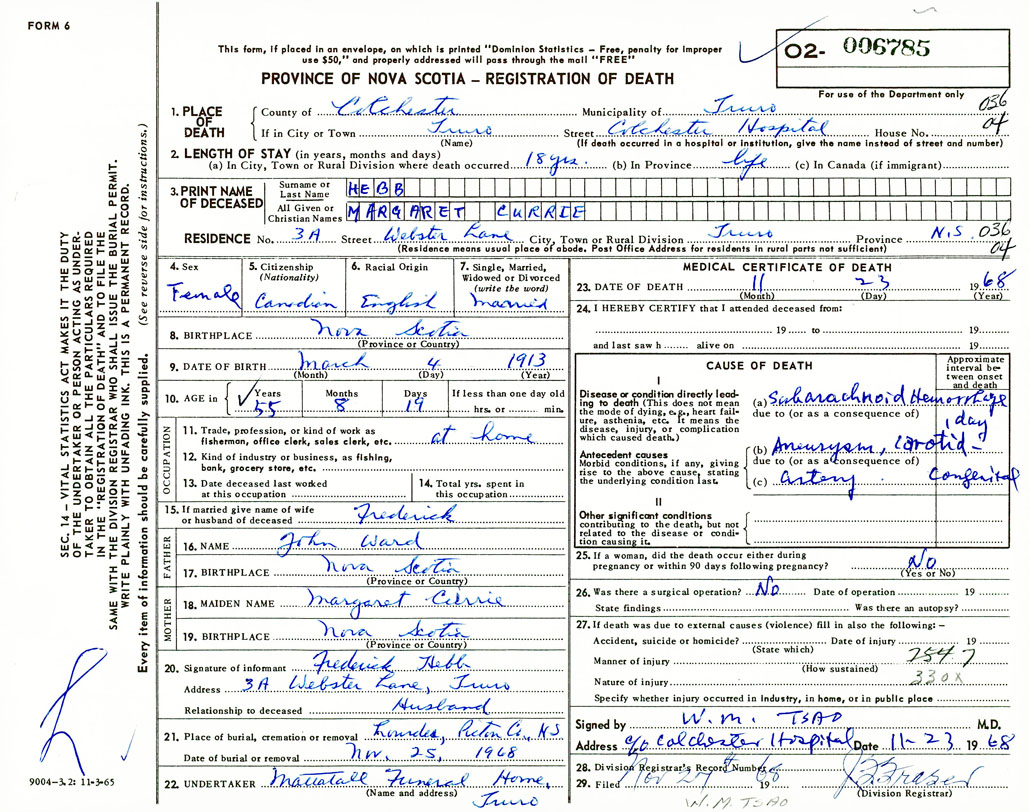 FORM 6
This form, if placed in an envelope, on which is printed "Dominion Statistics – Free, penalty for improper
use $50," and properly addressed will pass through the mail "FREE"
PROVINCE OF NOVA SCOTIA – REGISTRATION OF DEATH
O2- 006785
For use of the Department only
036
04
1. PLACE OF DEATH
County of Colchester Municipality of Truro
If in City or Town Truro Street Colchester Hospital House No.
(Name) (If death occurred in a hospital or institution, give the name instead of street and number)
2. LENGTH OF STAY (in years, months and days)
(a) In City, Town or Rural Division where death occurred 18 yrs. (b) In Province life (c) In Canada (if immigrant)
3. PRINT NAME OF DECEASED
Surname or Last Name HEBB
All Given or Christian Names MARGARET CURRIE
RESIDENCE No. 3A Street Webster Lane City, Town or Rural Division Truro Province N.S. 036
04
(Residence means usual place of abode. Post Office Address for residents in rural parts not sufficient)
4. Sex
Female
5. Citizenship
(Nationality)
Canadian
6. Racial Origin
English
7. Single, Married,
Widowed or Divorced
(write the word)
Married
8. BIRTHPLACE Nova Scotia
(Province or Country)
9. DATE OF BIRTH March 4 1913
(Month) (Day) (Year)
10. AGE in Years Months Days If less than one day old
55 8 19 hrs. or min.
OCCUPATION
11. Trade, profession, or kind of work as
fisherman, office clerk, sales clerk, etc. at home
12. Kind of industry or business, as fishing,
bank, grocery store, etc.
13. Date deceased last worked
at this occupation
14. Total yrs. spent in
this occupation
15. If married give name of wife
or husband of deceased Frederick
FATHER
16. NAME John Ward
17. BIRTHPLACE Nova Scotia
(Province or Country)
MOTHER
18. MAIDEN NAME Margaret Currie
19. BIRTHPLACE Nova Scotia
(Province or Country)
20. Signature of informant Frederick Hebb
Address 3A Webster Lane, Truro
Relationship to deceased Husband
21. Place of burial, cremation or removal Lourdes, Pictou Co., N.S
Date of burial or removal Nov. 25, 1968
22. UNDERTAKER Mattatall Funeral Home,
(Name and address) Truro
MEDICAL CERTIFICATE OF DEATH
23. DATE OF DEATH 11 23 1968
(Month) (Day) (Year)
24. I HEREBY CERTIFY that I attended deceased from:
19 to 19
and last saw h alive on 19
CAUSE OF DEATH
Approximate
interval be-
tween onset
and death
I
Disease or condition directly lead-
ing to death (This does not mean
the mode of dying, e.g., heart fail-
ure, asthenia, etc. It means the
disease, injury, or complication
which caused death.)
(a) Subarachnoid Hemorrhage
due to (or as a consequence of)
1 day
Antecedent causes
Morbid conditions, if any, giving
rise to the above cause, stating
the underlying condition last.
(b) Aneurysm, Carotid-
due to (or as a consequence of)
(c) artery Congenital
II
Other significant conditions
contributing to the death, but not
related to the disease or condi-
tion causing it.
25. If a woman, did the death occur either during
pregnancy or within 90 days following pregnancy? No
(Yes or No)
26. Was there a surgical operation? No Date of operation 19
State findings Was there an autopsy?
27. If death was due to external causes (violence) fill in also the following:–
Accident, suicide or homicide? Date of injury 19
(State which)
Manner of injury 2547
(How sustained)
Nature of injury 330x
Specify whether injury occurred in industry, in home, or in public place
Signed by W. M. TSAO M.D.
Address c/o Colchester Hospital Date 11-23 1968
28. Division Registrar's Record Number
29. Filed Nov 27th 1968
(Division Registrar)
W. M. TSAO
SEC. 14 – VITAL STATISTICS ACT MAKES IT THE DUTY
OF THE UNDERTAKER OR PERSON ACTING AS UNDER-
TAKER TO OBTAIN ALL THE PARTICULARS REQUIRED
IN THE "REGISTRATION OF DEATH" AND TO FILE THE
SAME WITH THE DIVISION REGISTRAR WHO SHALL ISSUE THE BURIAL PERMIT.
WRITE PLAINLY WITH UNFADING INK. THIS IS A PERMANENT RECORD.
Every item of information should be carefully supplied. (See reverse side for instructions.)
9004-3.2: 11-3-65